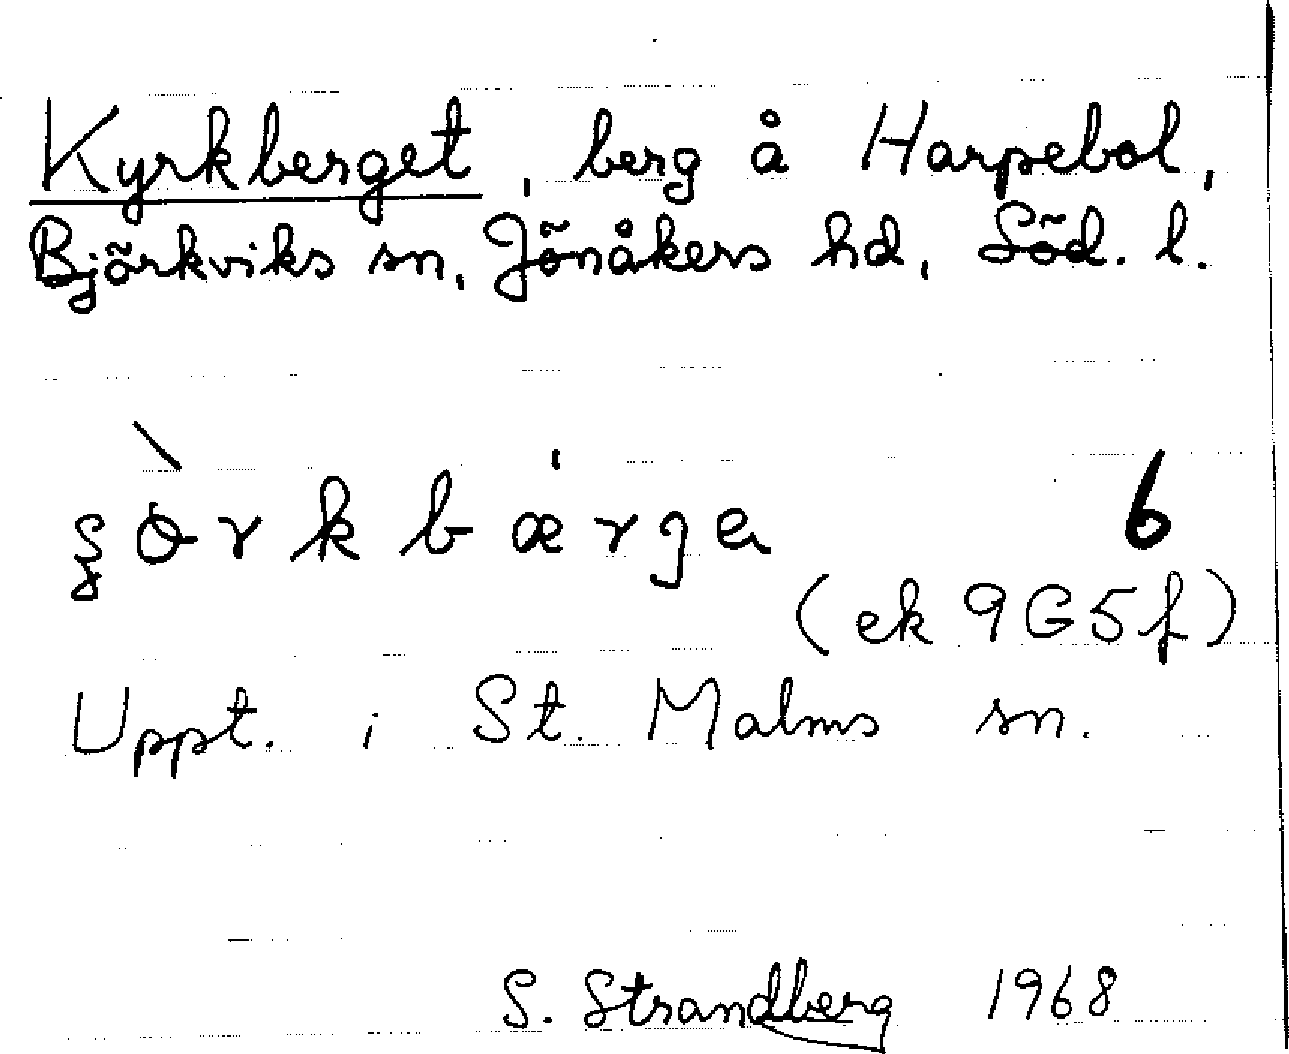 Kyrkberget, berg å Harpebol,
Björkviks sn, Jönåkers hd, Söd. l.
6
(ek 9G5f)
Uppt. i St. Malms sn.
S. Strandberg 1968